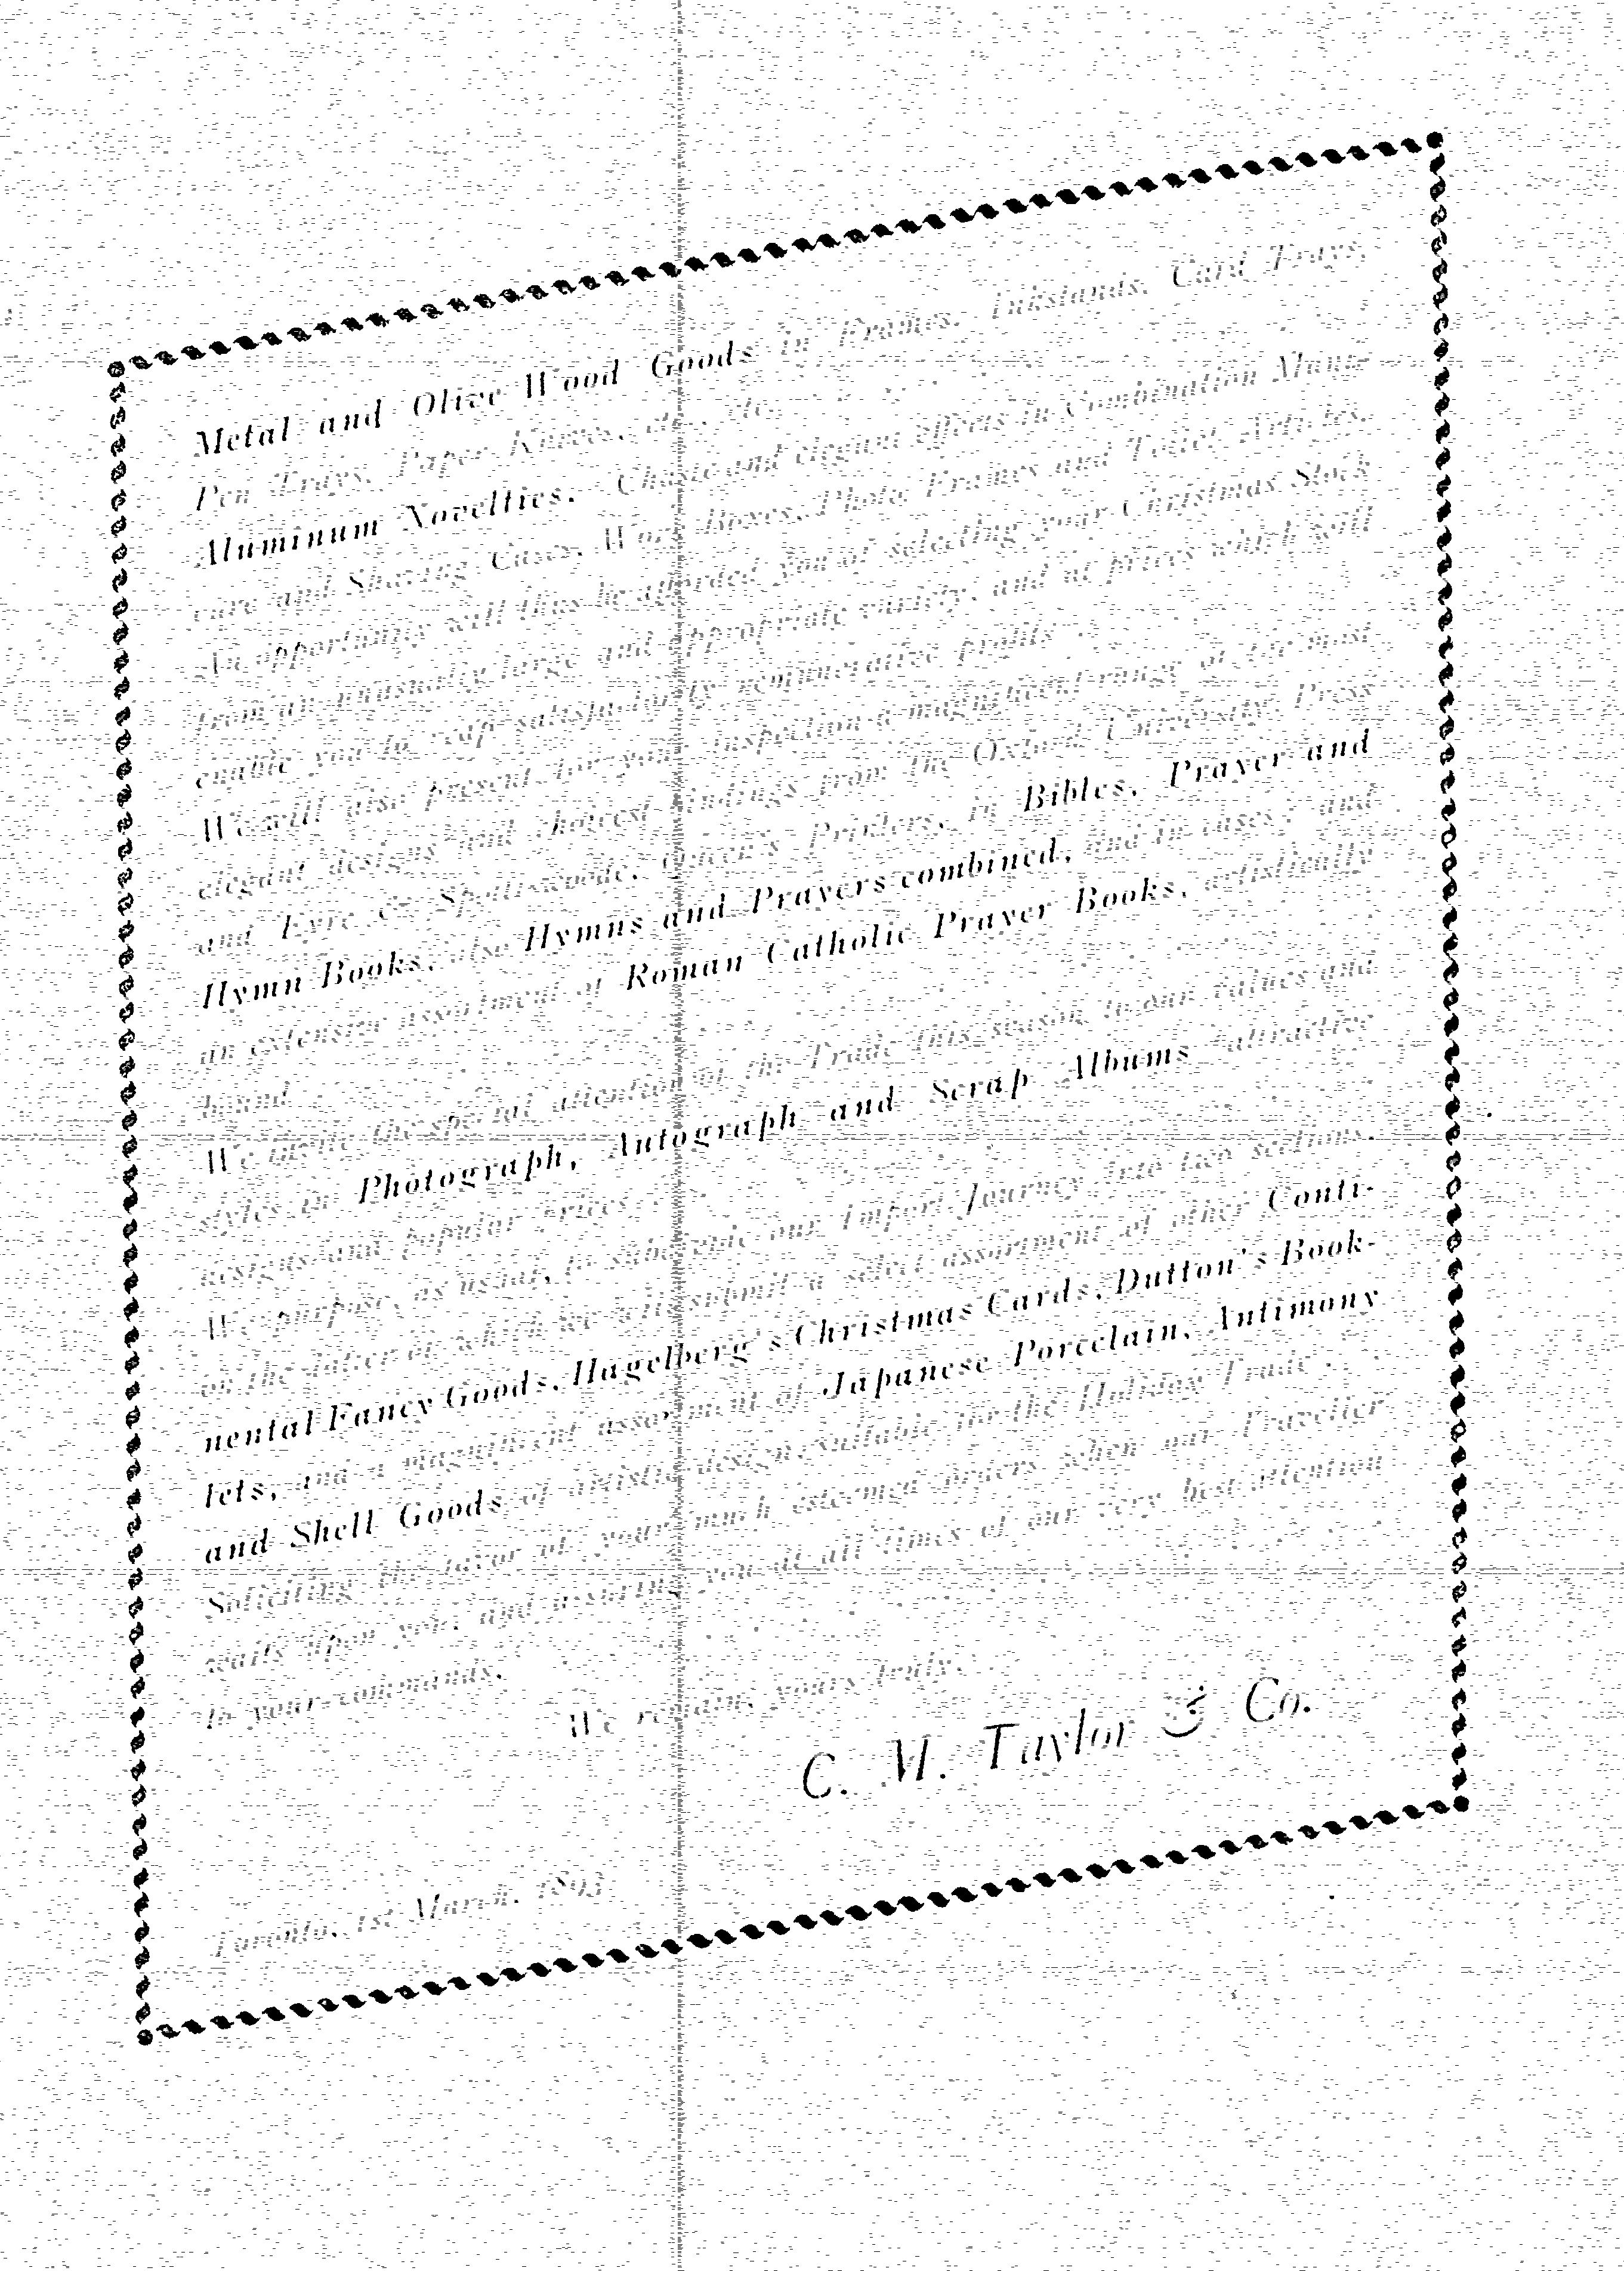 Metal and Olive Wood Goods in Frames, Inkstands, Card Trays,
Pen Trays, Paper Knives, etc., etc.
Aluminum Novelties. Chaste and elegant effects in Combination Manicure
and Shaving Cases, Work Boxes, Photo Frames and Toilet Articles.
An opportunity will thus be afforded you of selecting your Christmas Stock
from an unusually large and appropriate variety, and at prices which will
enable you to reap satisfactorily remunerative profits
We will also present for your inspection a magnificent range of the most
elegant designs and choicest bindings from the Oxford University Press
and Eyre & Spottiswoode, Queen's Printers, in Bibles, Prayer and
Hymn Books, also Hymns and Prayers combined, and in cases; and
an extensive assortment of Roman Catholic Prayer Books, artistically
bound
We invite the special attention of the Trade this season to our values and
styles in Photograph, Autograph and Scrap Albums attractive
designs and popular prices
We purpose, as usual, to subdivide our Import Journey into two sections,
on the latter of which we will submit a select assortment of other Conti-
nental Fancy Goods, Hagelberg's Christmas Cards, Dutton's Book-
lets, and a magnificent assortment of Japanese Porcelain, Antimony
and Shell Goods of artistic design, suitable for the Holiday Trade.
Soliciting the favor of your much esteemed orders when our Traveller
waits upon you, and assuring you at all times of our very best attention
to your commands,
We remain, yours truly,
C. M. Taylor & Co.
Toronto, 1st March, 1893